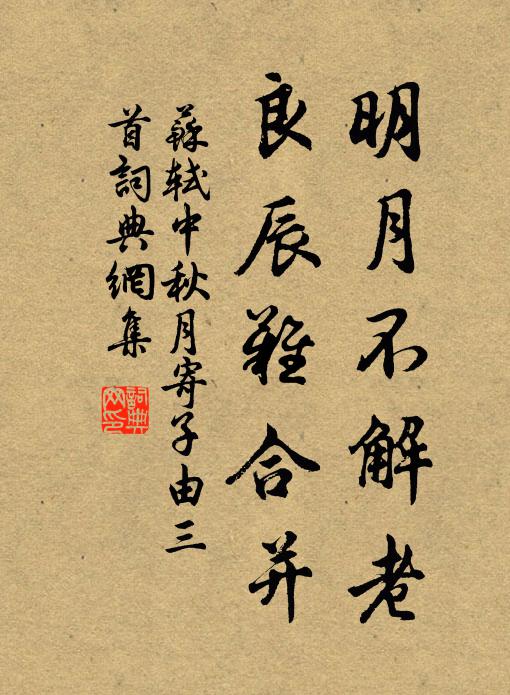 明月不解老
良辰難合并
蘇軾中秋月寄子由三
首詞典網集
詞典
网印